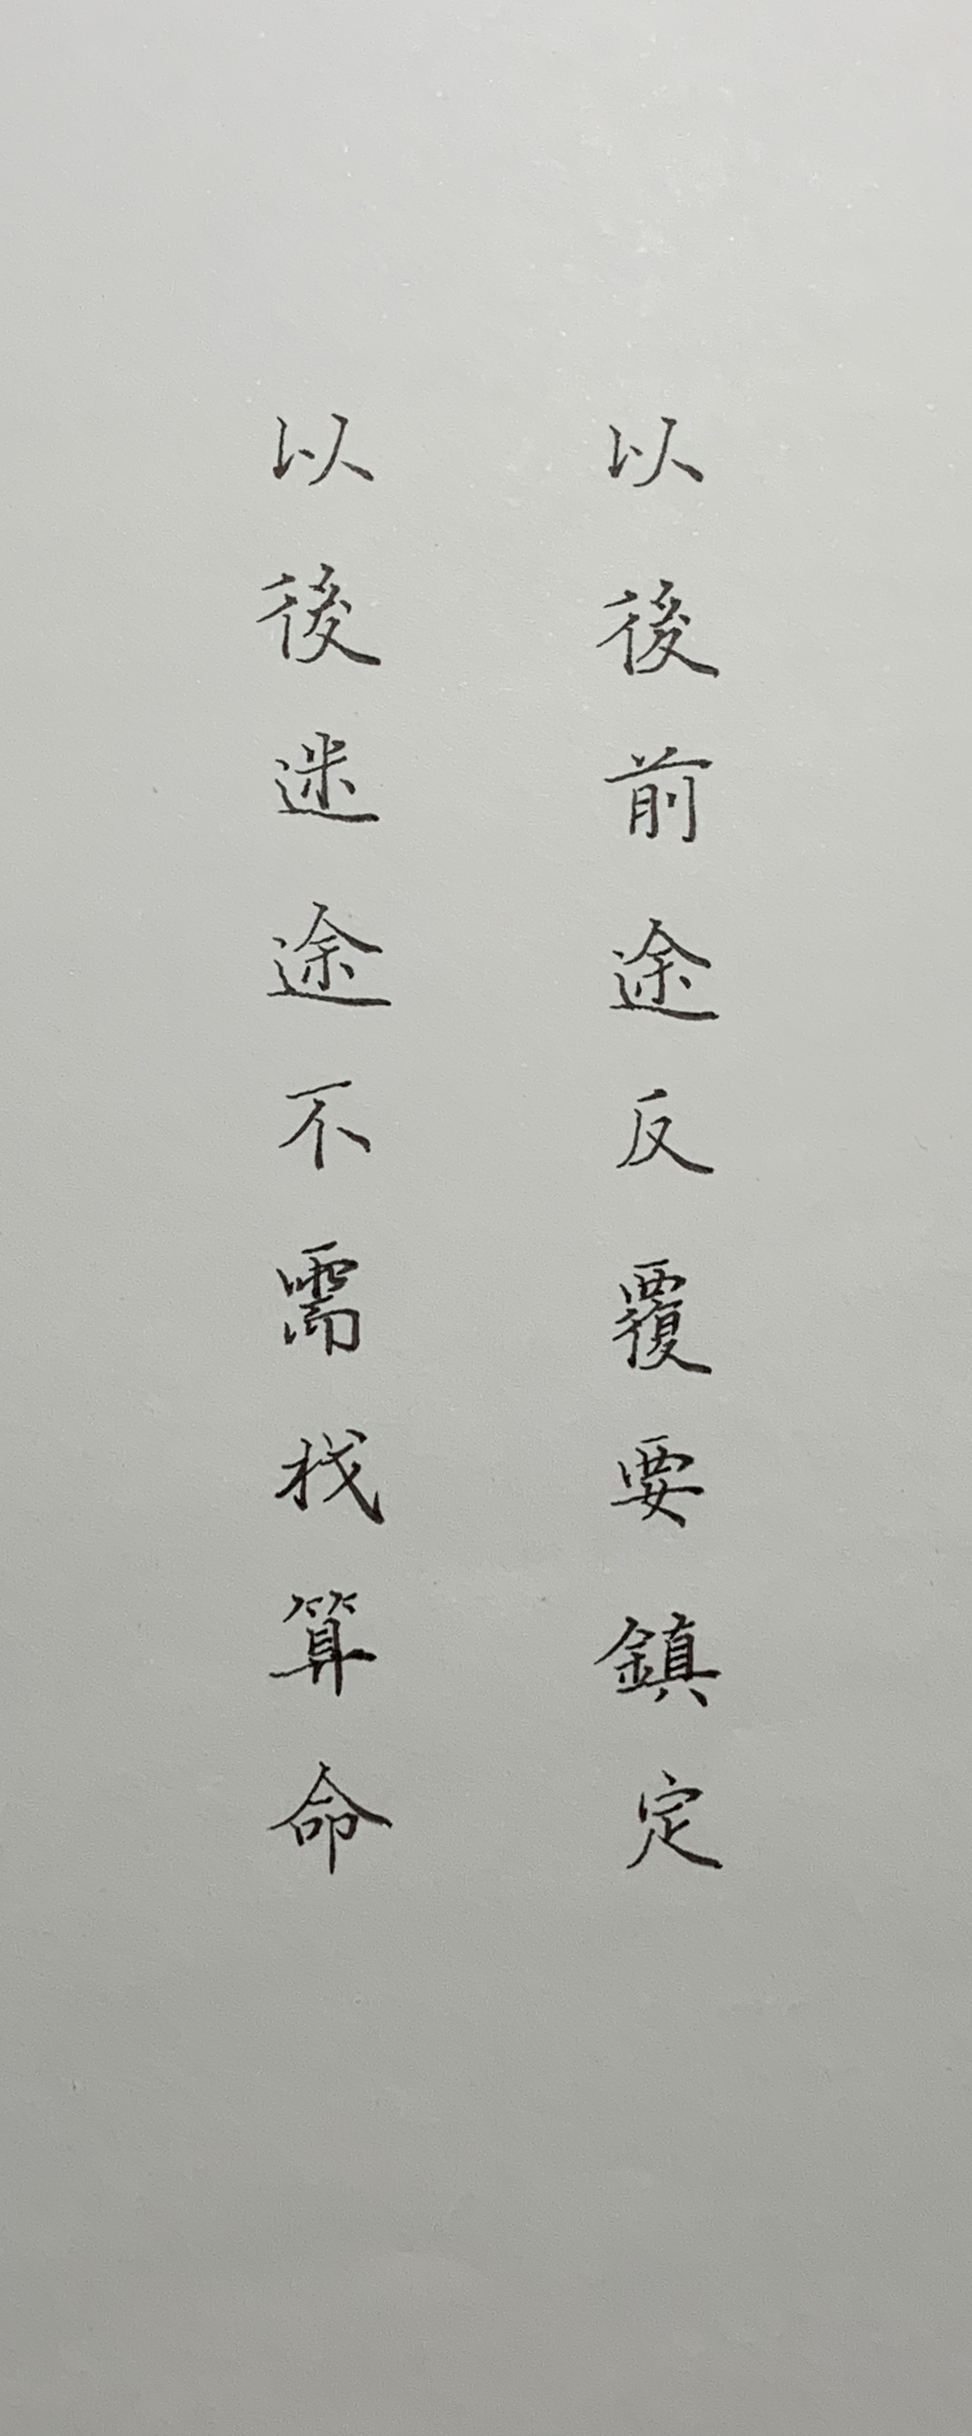 以後前途反覆要鎮定
以後迷途不需找算命